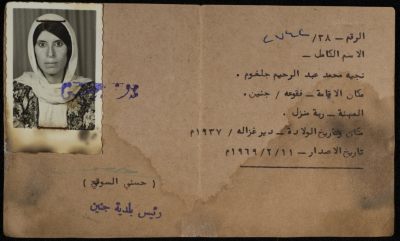 الرقم ــ ٣٨/
الاسم الكامل ــ
نجيه محمد عبد الرحيم جلغوم ٠
مكان الاقامة ــ فقوعه / جنين ٠
المهنة ــ ربة منزل ٠
مكان وتاريخ الولادة ــ دير غزاله / ١٩٣٧م
تاريخ الاصدار ــ ١٩٦٩/٢/١١م
( حسني السوقي )
رئيس بلدية جنين